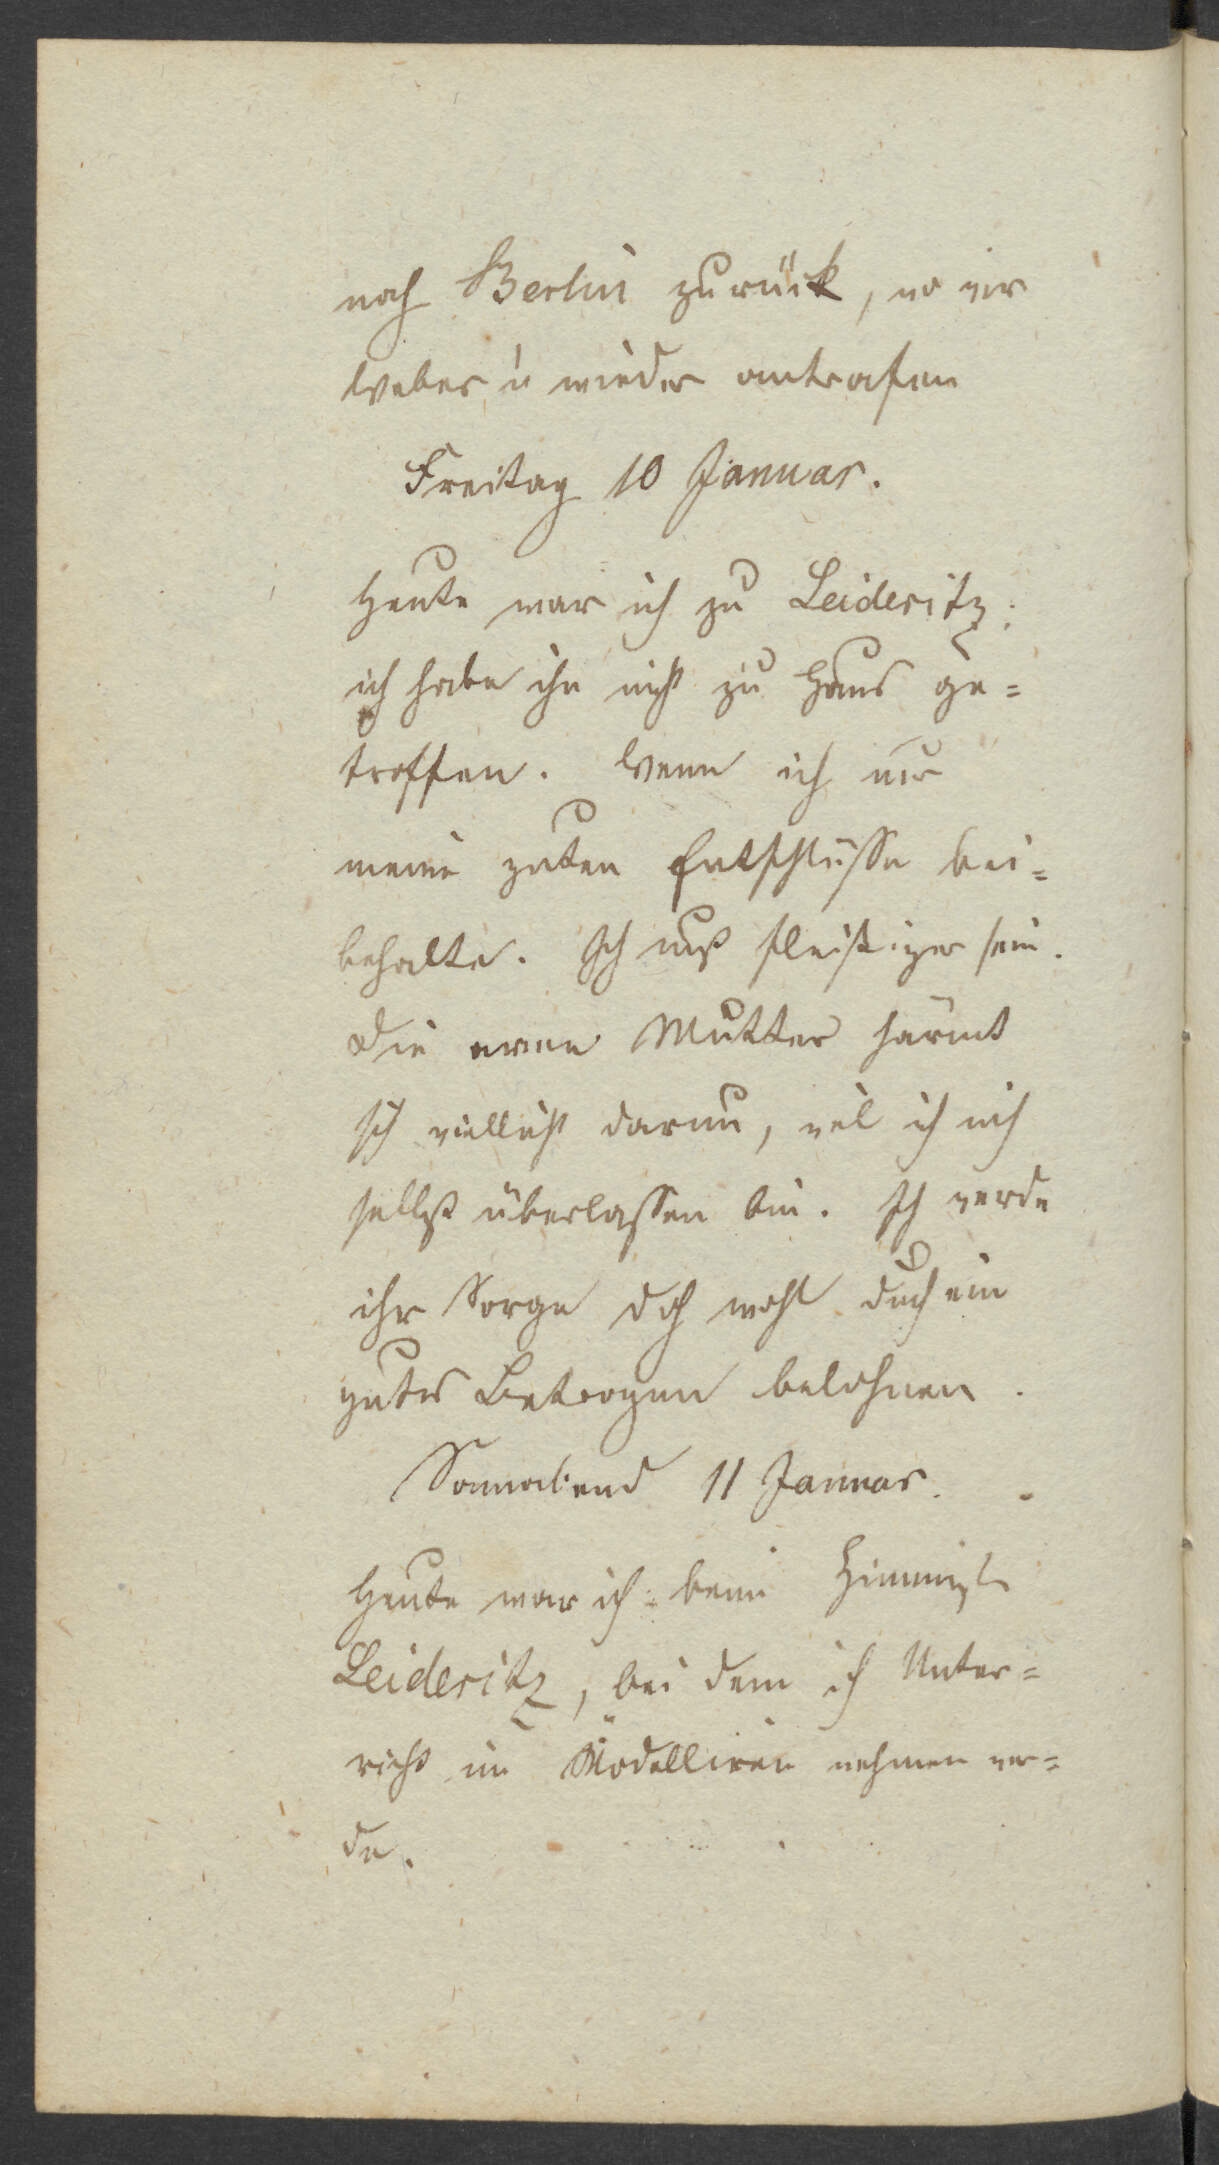 nach Berlin zurück, wo wir
Weber's wieder antrafen
Freitag 10 Januar.
Heute war ich zu Leideritz;
ich habe ihn nicht zu Haus ge=
troffen. Wenn ich nur
meine guten Entschlüsse bei=
behalte. Ich muß fleißiger sein.
Die arme Mutter härmt
sich vielleicht darum, weil ich mich
selbst überlassen bin. Ich werde
ihr Sorge doch wohl durch ein
gutes Betragen belohnen.
Sonnabend 11 Januar.
Heute war ich beim
Leideritz, bei dem ich Unter=
richt im Modelliren nehmen wer=
de.